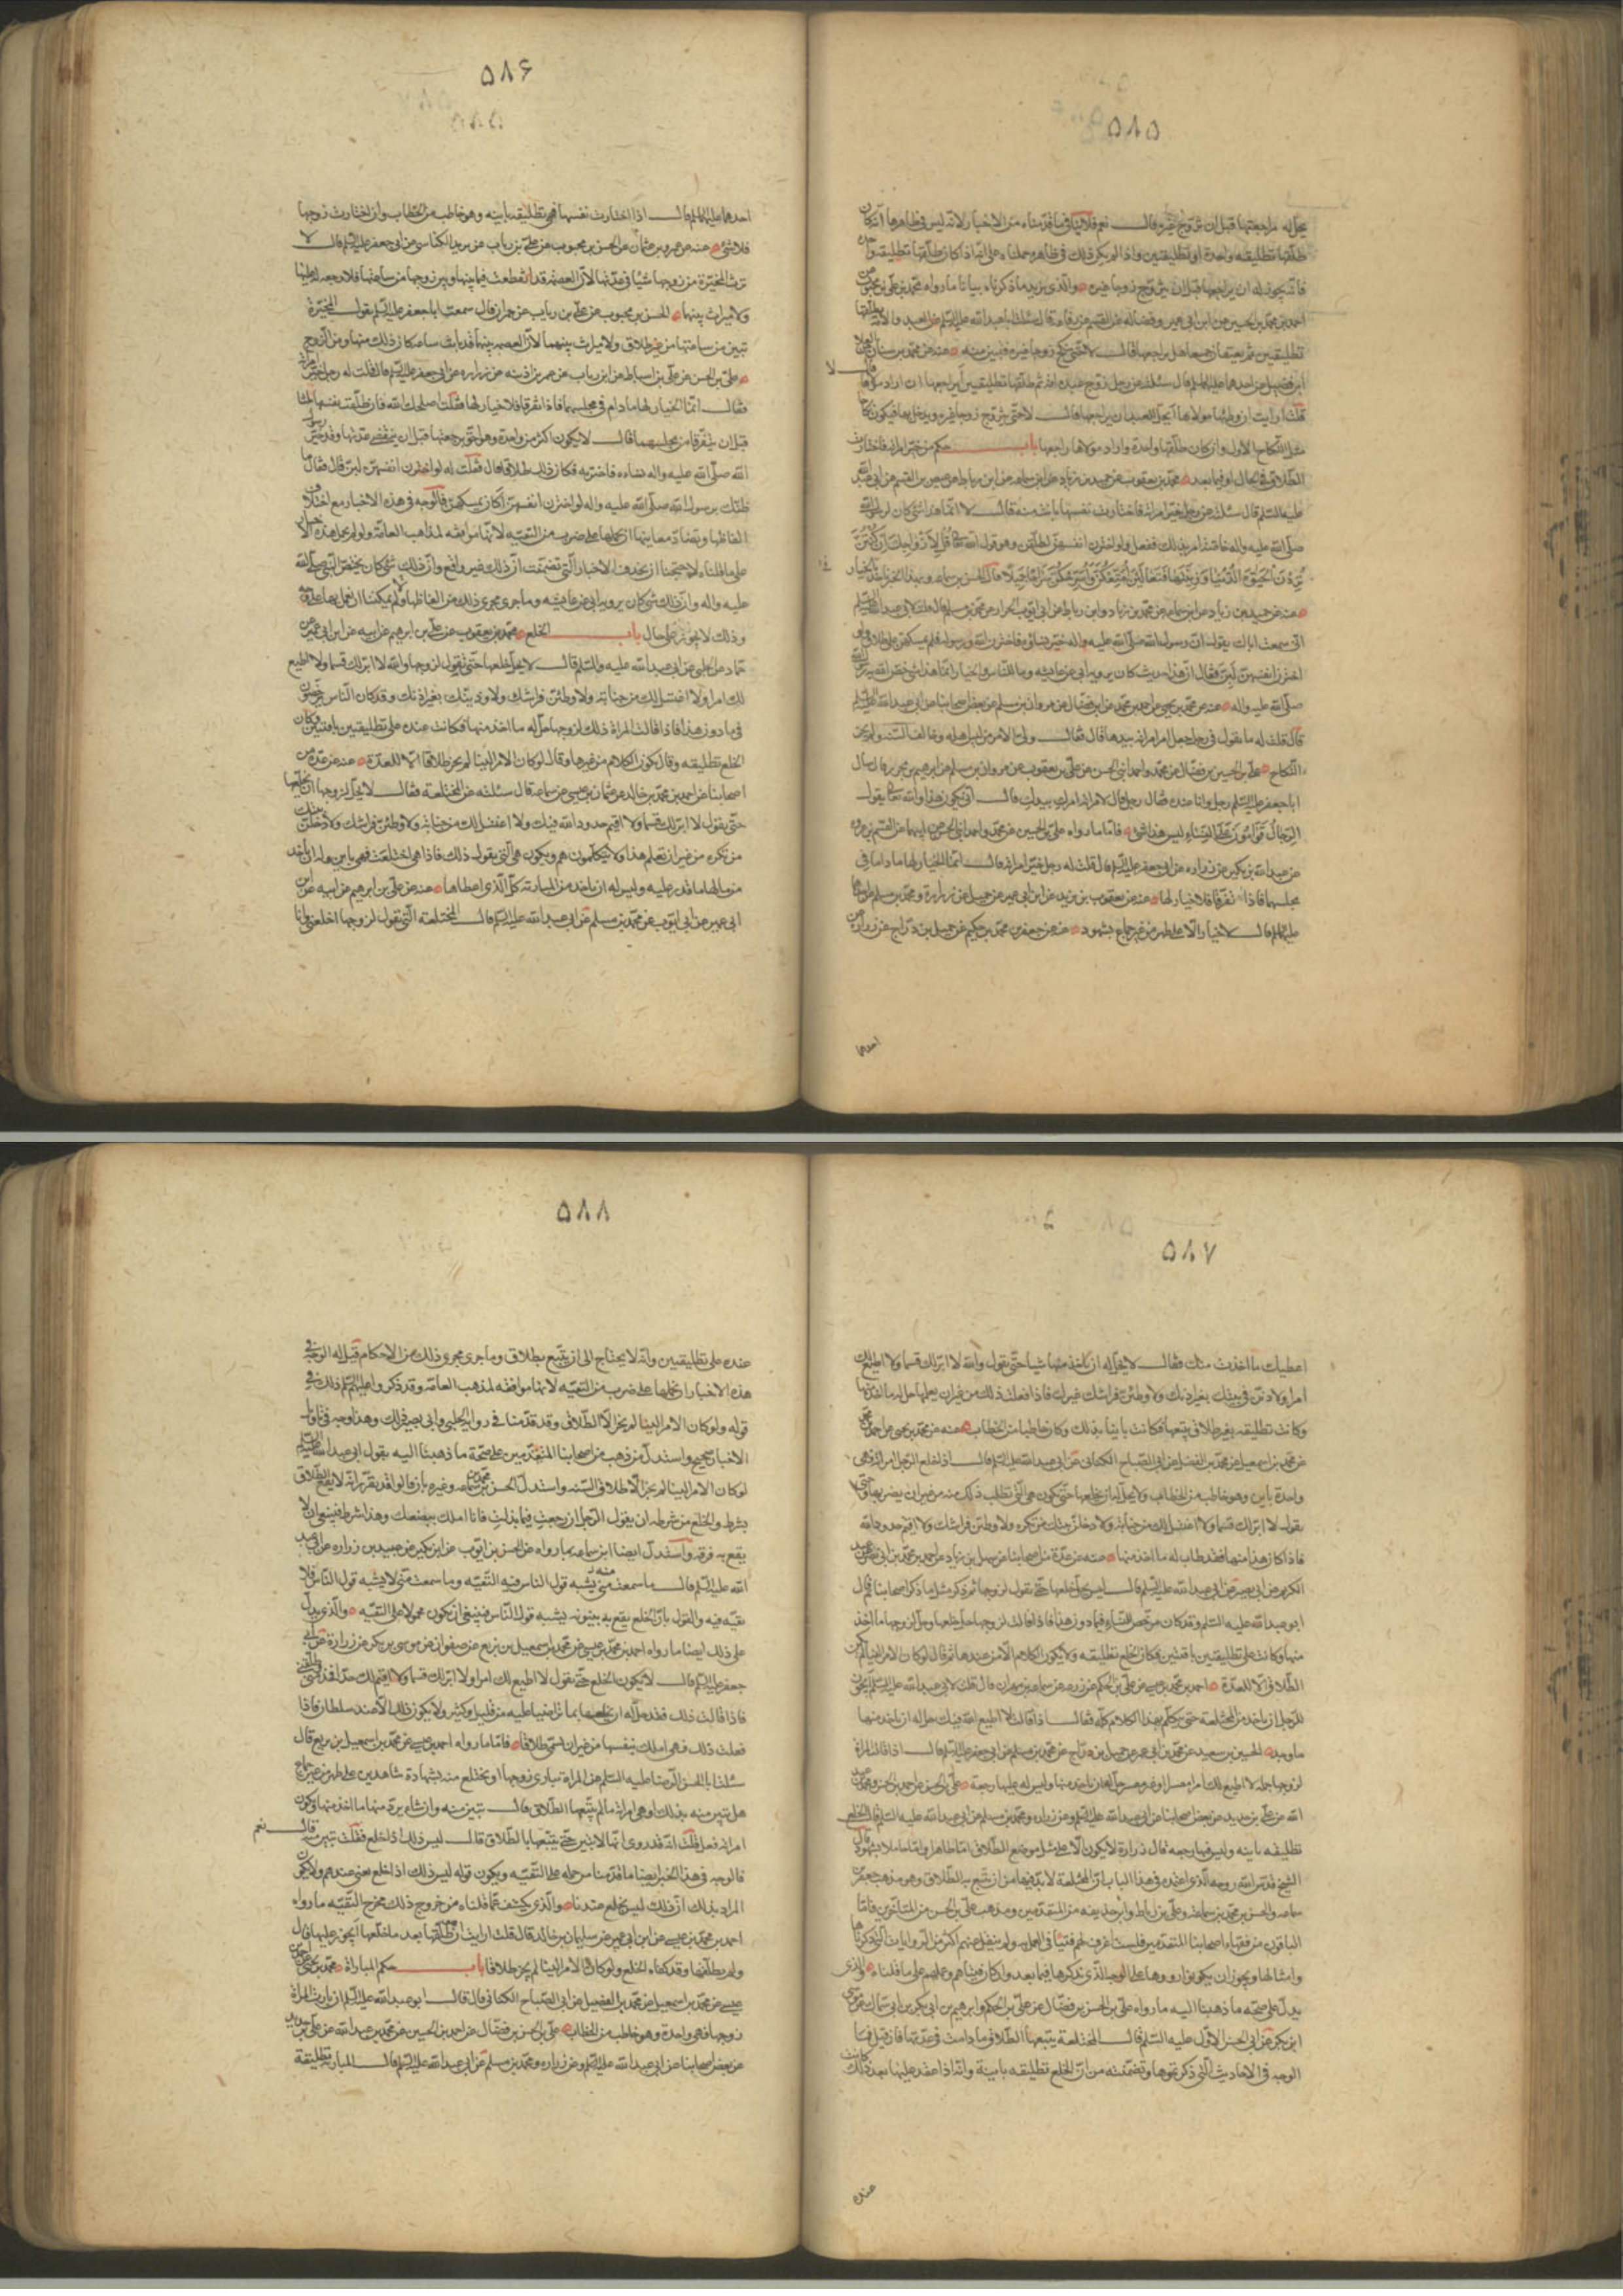 ۵۸۵
يحل له مراجعتها قبل ان تزوج غيره فقال نعم فلاينافي ما قدمناه من الاخبار لانه ليس في ظاهرها انه كان
طلقها تطليقة واحدة او تطليقتين واذا لم يكن ذلك في ظاهره حملناه على انه اذا كان طلقها تطليقة واحدة
فانه يجوز له ان يراجعها قبل ان يتزوج زوجا غيره والذي يزيد ما ذكرناه بيانا ما رواه محمد بن علي بن محبوب عن
احمد بن محمد بن الحسين عن ابن ابي عمير وفضالة عن القسم عن رفاعة قال سئلت ابا عبد الله عليه السلم عن العبد والامة يطلقها
تطليقتين ثم يعتقان جميعا هل يراجعها قال لا حتى تنكح زوجا غيره فتبين منه عنه عن محمد بن سنان عن العلا
ابن فضيل عن احدهما عليهما السلم قال سئلته عن رجل زوج عبده امته ثم طلقها تطليقتين أيراجعها ان اراد مولاها قال لا
قلت افرايت ان وطئها مولاها ايحل للعبد ان يراجعها قال لا حتى تتزوج زوجا غيره ويدخل بها فيكون نكاحا
مثل النكاح الاول وان كان طلقها واحدة واراد مولاها راجعها باب حكم من خير امراته فاختارت
الطلاق في الحال او فيما بعد محمد بن يعقوب عن حميد بن زياد عن ابن سماعة عن ابن رباط عن عيص بن القسم عن ابي عبد الله
عليه السلم قال سئلته عن رجل خير امراته فاختارت نفسها بانت منه قال لا انما هذا شئ كان لرسول الله
صلى الله عليه واله خاصة امر بذلك ففعل ولو اخترن انفسهن لطلقهن وهو قول الله تعالى قل لازواجك ان كنتن
تردن الحيوة الدنيا وزينتها فتعالين امتعكن واسرحكن سراحا جميلا قال الحسن بن سماعة وبهذا الخبر ناخذ في الخيار
عنه عن حميد بن زياد عن ابن سماعة عن محمد بن زياد وابن رباط عن ابي ايوب الخزاز عن محمد بن مسلم قال قلت لابي عبد الله عليه السلم
اني سمعت اباك يقول ان رسول الله صلى الله عليه واله خير نساؤه فاخترن الله ورسوله فلم يمسكهن على طلاق ولو
اخترن انفسهن لبن فقال ان هذا حديث كان يرويه ابي عن عايشة وما للناس والخيار انما هذا شئ خص الله به رسوله
صلى الله عليه واله عنه عن محمد بن يحيى عن احمد بن محمد عن ابن فضال عن هرون بن مسلم عن بعض اصحابنا عن ابي عبد الله عليه السلم
قال قلت له ما تقول في رجل جعل امر امراته بيدها قال فقال ولى الامر من ليس اهله وخالف السنة ولم يجز
النكاح علي بن الحسن بن فضال عن محمد واحمد ابني الحسن عن علي بن يعقوب عن مروان بن مسلم عن ابراهيم بن محرز قال سأل
ابا جعفر عليه السلم رجل وانا عنده فقال رجل قال لامراته امرك بيدك قال أنى يكون هذا والله تعالى يقول
الرجال قوامون على النساء ليس هذا بشئ فاما ما رواه علي بن الحسن عن محمد واحمد ابني الحسن عن ابيهما عن القسم بن عروة
عن عبد الله بن بكير عن زرارة عن ابي جعفر عليه السلم قال قلت له رجل خير امراته قال انما الخيار لها ما داما في
مجلسهما فاذا تفرقا فلا خيار لها عنه عن يعقوب بن يزيد عن ابن ابي عمير عن جميل عن زرارة ومحمد بن مسلم عن احدهما
عليهما السلم قال لا خيار الا على طهر من غير جماع بشهود عنه عن جعفر بن محمد بن حكيم عن جميل بن دراج عن زرارة عن
احدهما
۵۸۶
احدهما عليهما السلم قال اذا اختارت نفسها فهي تطليقة باينة وهو خاطب من الخطاب وان اختارت زوجها
فلا شئ عنه عن عمرو بن عثمان عن الحسن بن محبوب عن علي بن رياب عن يزيد الكناسي عن ابي جعفر عليه السلم قال لا
ترث المخيرة من زوجها شيئا في عدتها لان العصمة قد انقطعت فيما بينها وبين زوجها من ساعتها فلا رجعة له عليها
ولا ميراث بينهما الحسن بن محبوب عن علي بن رياب عن حمران قال سمعت ابا جعفر عليه السلم يقول المخيرة
تبين من ساعتها من غير طلاق ولا ميراث بينهما لان العصمة بينهما قد بانت ساعة كان ذلك منها ومن الزوج
علي بن الحسن عن علي بن اسباط عن ابن رباب عن عمر بن اذينة عن زرارة عن ابي جعفر عليه السلم قال قلت له رجل خير امراته
فقال انما الخيار لها ما دام في مجلسهما فاذا تفرقا فلا خيار لها فقلت اصلحك الله فان طلقت نفسها ثلثا
قبل ان يتفرقا من مجلسهما قال لا يكون اكثر من واحدة وهو احق برجعتها قبل ان ينقضي عدتها وقد خير رسول
الله صلى الله عليه واله نساءه فاخترنه فكان ذلك طلاقا قال فقلت له لو اخترن انفسهن لبن قال فقال ما
ظنك برسول الله صلى الله عليه واله لو اخترن انفسهن اكان يمسكهن فالوجه في هذه الاخبار مع اختلاف
الفاظها وتضاد معانيها ان نحملها على ضرب من التقية لانها موافقة لمذاهب العامة ولو لم نحمل هذه الاخبار
على ما قلناه لاحتجنا ان نحذف الاخبار التي تضمنت ان ذلك غير واقع وان ذلك شئ كان يختص النبي صلى الله
عليه واله وان ذلك شئ كان يرويه ابي عن عايشة وما جرى مجرى ذلك من الفاظها ولا يمكننا ان نعمل بها على وجه
وذلك لا يجوز على حال باب الخلع محمد بن يعقوب عن علي بن ابرهيم عن ابيه عن ابن ابي عمير عن
حماد عن الحلبي عن ابي عبد الله عليه والسلم قال لا يحل خلعها حتى تقول لزوجها والله لا ابر لك قسما ولا اطيع
لك امرا ولا اغتسل لك من جنابة ولا وطئن فراشك ولاوذين بيتك بغير اذنك وقد كان الناس يرخصون
فيما دون هذا فاذا قالت المراة ذلك لزوجها حل له ما اخذ منها فكانت عنده على تطليقتين باقيتين وكان
الخلع تطليقة وقال يكون الكلام من غيرها وقال لو كان الامر الينا لم يجز طلاقا الا للعدة عنه عن عدة من
اصحابنا عن احمد بن محمد بن خالد عن عثمان بن عيسى عن سماعة قال سئلته عن المختلعة فقال لا يحل لزوجها ان يخلعها
حتى تقول لا ابر لك قسما ولا اقيم حدود الله فيك ولا اغتسل لك من جنابة ولاوطئن فراشك ولادخلن بيتك
من تكره من غير ان تعلم هذا ولا يتكلمون هم وتكون هي التي تقول ذلك فاذا هي اختلعت فهي باين وله ان ياخذ
من مالها ما قدر عليه وليس له ان ياخذ من المبارئة كل الذي اعطاها عنه عن علي بن ابرهيم عن ابيه عن ابن
ابي عمير عن ابي ايوب عن محمد بن مسلم عن ابي عبد الله عليه السلم قال المختلعة التي تقول لزوجها اخلعني وانا
۵۸۷
اعطيك ما اخذت منك فقال لا يحل له ان ياخذ منها شيئا حتى تقول والله لا ابر لك قسما ولا اطيع لك
امرا ولاذنن في بيتك بغير اذنك ولاوطئن فراشك غيرك فاذا فعلت ذلك من غير ان يعلمها حل له ما اخذ منها
وكانت تطليقة بغير طلاق يتبعها فكانت باينا بذلك وكان خاطبا من الخطاب عنه عن محمد بن يحيى عن احمد بن محمد
عن محمد بن اسمعيل عن محمد بن الفضيل عن ابي الصباح الكناني عن ابي عبد الله عليه السلم قال اذا خلع الرجل امراته فهي
واحدة باين وهو خاطب من الخطاب ولا يحل له ان يخلعها حتى تكون هي التي تطلب ذلك منه من غير ان يضر بها وحتى
تقول لا ابر لك قسما ولا اغتسل لك من جنابة ولادخلن بيتك من تكره ولاوطئن فراشك ولا اقيم حدود الله
فاذا كان هذا منها فقد طاب له ما اخذ منها عنه عن عدة من اصحابنا عن سهل بن زياد عن احمد بن محمد بن ابي نصر عن عبد
الكريم عن ابي بصير عن ابي عبد الله عليه السلم قال ليس يحل خلعها حتى تقول لزوجها ثم ذكر مثل ما ذكر اصحابنا ثم قال
ابو عبد الله عليه السلم وقد كان يرخص للنساء فيما دون هذا فاذا قالت لزوجها ذلك حل خلعها وحل لزوجها ما اخذ
منها وكانت على تطليقتين باقيتين وكان الخلع تطليقة ولا يكون الكلام الا من عندها ثم قال لو كان الامر الينا لم يكن
الطلاق الا للعدة احمد بن محمد بن عيسى عن علي بن الحكم عن زرعة عن سماعة بن مهران قال قلت لابي عبد الله عليه السلم لا يجوز
للرجل ان ياخذ من المختلعة حتى تتكلم بهذا الكلام كله فقال اذا قالت لا اطيع الله فيك حل له ان ياخذ منها
ما وجد الحسين بن سعيد عن محمد بن ابي عمير عن جميل بن دراج عن محمد بن مسلم عن ابي جعفر عليه السلم قال اذا قالت المراة
لزوجها جملة لا اطيع لك امرا مفسرا او غير مفسر حل له ان ياخذ منها وليس له عليها رجعة علي بن الحسن عن احمد بن الحسن ومحمد بن عبد
الله عن علي بن حديد عن بعض اصحابنا عن ابي عبد الله عليه السلم وعن زرارة ومحمد بن مسلم عن ابي عبد الله عليه السلم قال الخلع
تطليقة باينة وليس فيها رجعة قال زرارة لا يكون الا على مثل موضع الطلاق اما طاهرا واما حاملا بشهود قال
الشيخ قدس الله روحه الذي اعتمده في هذا الباب ان المختلعة لا بد فيها من ان تتبع بالطلاق وهو مذهب جعفر بن
سماعة والحسن بن محمد بن سماعة وعلي بن رباط وابن حذيفة من المتقدمين ومذهب علي بن الحسن من المتاخرين فاما
الباقون من فقهاء اصحابنا المتقدمين فلست اعرف لهم فتيا في العمل به ولم ينقل عنهم اكثر من الروايات التي ذكرناها
وامثالها ويجوز ان يكونوا رووها على الوجه الذي نذكرها فيما بعد وان كان فتياهم وعلمهم على ما قلناه والذي
يدل على صحة ما ذهبنا اليه ما رواه علي بن الحسن بن فضال عن علي بن الحكم وابرهيم بن ابي بكر بن ابي سماك عن موسى
ابن بكر عن ابي الحسن الاول عليه السلم قال المختلعة يتبعها الطلاق ما دامت في عدتها فان قيل فما
الوجه في الاحاديث التي ذكرتموها وتضمنته من ان الخلع تطليقة باينة وانه اذا عقد عليها بعد ذلك كانت
عنده
۵۸۸
عنده على تطليقتين وانه لا يحتاج الى ان يتبع بطلاق وما جرى مجرى ذلك من الاحكام قيل له الوجه في
هذه الاخبار ان نحملها على ضرب من التقية لانها موافقة لمذهب العامة وقد ذكروا عليهم السلم ذلك في
قوله ولو كان الامر الينا لم نجز الا الطلاق وقد قدمنا في رواية الحلبي وابي بصير ذلك وهذا وجه في تاويل
الاخبار صحيح واستدل من ذهب من اصحابنا المتقدمين على صحة ما ذهبنا اليه بقول ابي عبد الله عليه السلم
لو كان الامر الينا لم نجز الا طلاق السنة واستدل الحسن بن محمد بن سماعة وغيره بان قالوا قد تقرر انه لا يقع الطلاق
بشرط والخلع من شرطه ان يقول الرجل ان رجعت فيما بذلت فانا املك ببضعك وهذا شرط فينبغي ان لا
يقع به فرقة واستدل ايضا ابن سماعة بما رواه عن الحسن بن ايوب عن ابن بكير عن عبيد بن زرارة عن ابي عبد
الله عليه السلم قال ما سمعت مني يشبه قول الناس فيه التقية وما سمعت مني لا يشبه قول الناس فلا
تقية فيه والقول بان الخلع يقع به بينونة يشبه قول الناس فينبغي ان يكون محمولا على التقية والذي يدل
على ذلك ايضا ما رواه احمد بن محمد بن عيسى عن محمد بن اسمعيل بن بزيع عن صفوان عن موسى بن بكر عن زرارة عن ابي
جعفر عليه السلم قال لا يكون الخلع حتى تقول لا اطيع لك امرا ولا ابر لك قسما ولا اقيم لك حدا فخذ مني وطلقني
فاذا قالت ذلك فقد حل له ان يخلعها بما تراضيا عليه من قليل وكثير ولا يكون ذلك الا عند سلطان فاذا
فعلت ذلك فهي املك بنفسها من غير ان يسمى طلاقا فاما ما رواه احمد بن عيسى عن محمد بن اسمعيل بن بزيع قال
سئلت ابا الحسن الرضا عليه السلم عن المراة تباري زوجها او تختلع منه بشهادة شاهدين على طهر من غير جماع
هل تبين منه بذلك او هي امراته ما لم يتبعها الطلاق قال تبين منه وان شاء ان يرد منها ما اخذ منها وتكون
امراته فعل فقلت انه قد روى انها لا تبين حتى يتبعها بالطلاق قال ليس ذلك اذا خلع فقلت تبين منه قال نعم
فالوجه في هذا الخبر ايضا ما قدمنا من حمله على التقية ويكون قوله ليس ذلك اذا خلع يعني عندهم ولا يكون
المراد بذلك ان ذلك ليس بخلع عندنا والذي يكشف عما قلناه من خروج ذلك مخرج التقية ما رواه
احمد بن محمد بن عيسى عن ابن ابي عمير عن سليمان بن خالد قال قلت ارايت ان طلقها بعد ما خلعها ايجوز عليها قال
ولم يطلقها وقد كفاه الخلع ولو كان الامر الينا لم نجز طلاقا باب حكم المباراة محمد بن يحيى عن احمد بن
عيسى عن محمد بن اسمعيل عن محمد بن الفضيل عن ابي الصباح الكناني قال قال ابو عبد الله عليه السلم ان بارت امراة
زوجها فهي واحدة وهو خاطب من الخطاب علي بن الحسن بن فضال عن احمد بن الحسن عن محمد بن عبد الله عن علي بن حديد
عن بعض اصحابنا عن ابي عبد الله عليه السلم وعن زرارة ومحمد بن مسلم عن ابي عبد الله عليه السلم قال المباراة تطليقة